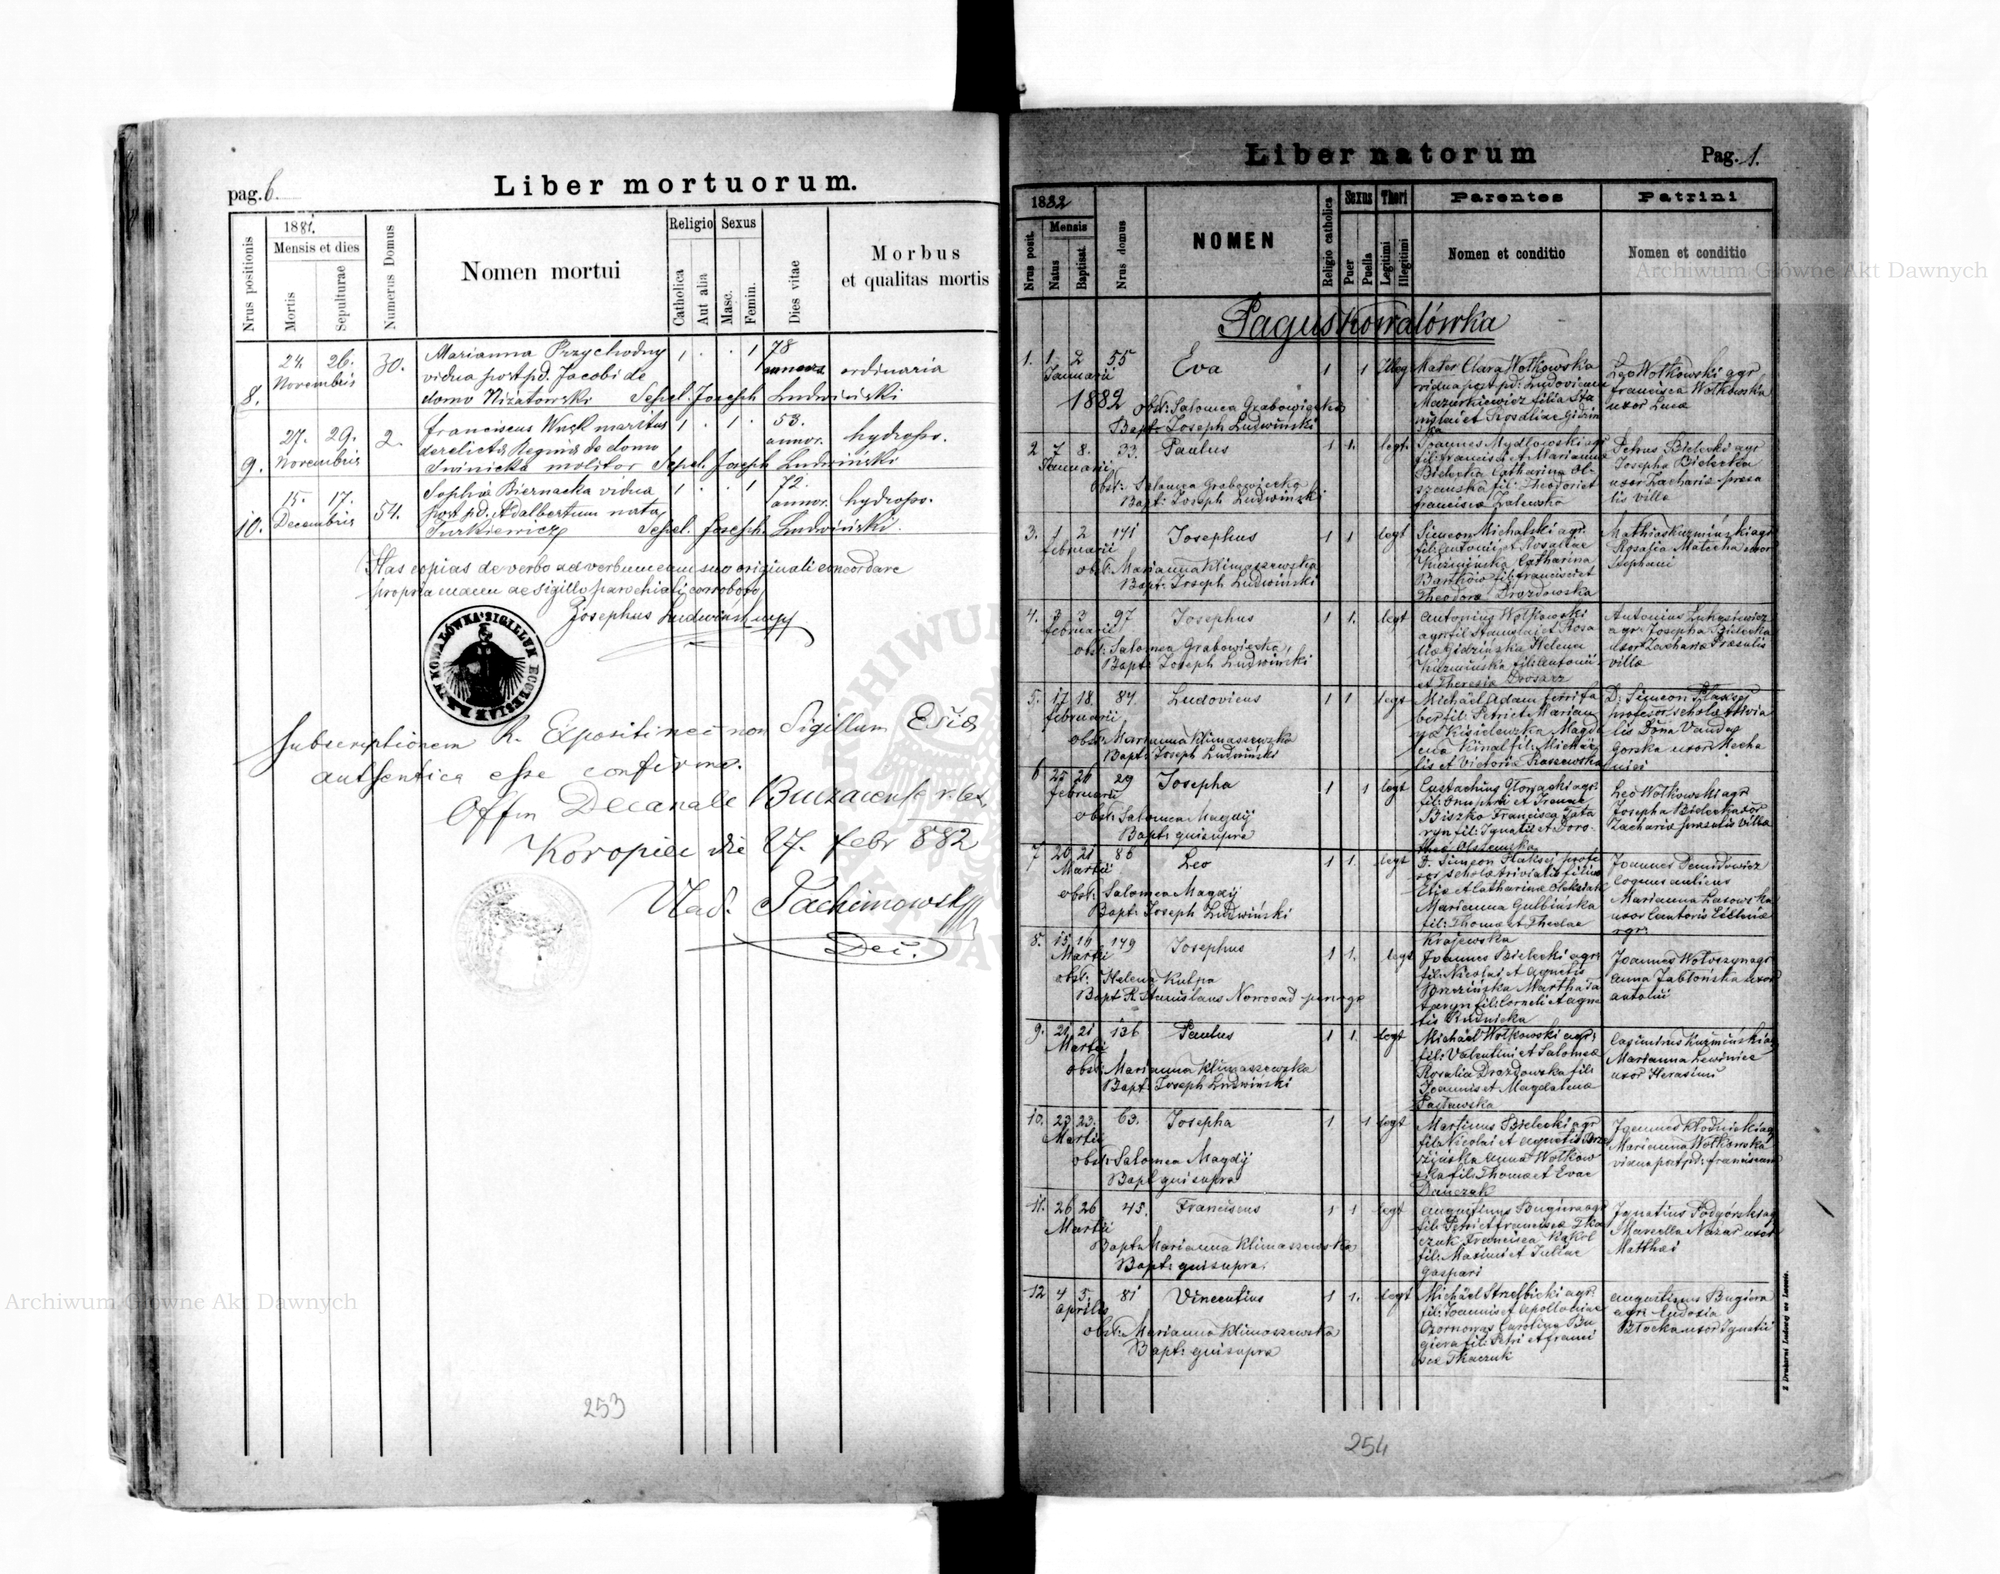 pag. 6.
Liber mortuorum.
Nrus positionis
1881.
Mensis et dies
Mortis
Sepulturae
Numerus Domus
Nomen mortui
Religio
Catholica
Aut alia
Sexus
Masc.
Femin.
Dies vitae
Morbus
et qualitas mortis
8.
24 26.
Novembris
30.
Marianna Przychodny
vidua post pd. Jacobi de
domo Nizatowski Sepel. Joseph Ludwiński
1 . . 1
78
annors
ordinaria
9.
27. 29.
Novembris
2.
Franciscus Wnęk maritus
derelictus Reginis de domo
Swinicka molitor Sepel. Joseph Ludwiński
1 . 1 .
53.
annor.
hydrops.
10.
15. 17.
Decembris
54.
Sophia Biernacka vidua
post pd. Adalbertum nata
Turkiewicz Sepel. Joseph. Ludwiński.
1 . . 1
72.
annor.
hydrops.
Has copias de verbo ad verbum cum suo originali concordare
propria manu ac sigillo parochiali corroboro
Josephus Ludwiński
Subscriptionem R. Expositi nec non Sigillum Eccliæ
authentica esse confirmo.
Offm Decanale
Koropiec die 27. febr 882
Vlad. Pachimowski
Dec.
253
Liber natorum
Pag. 1.
1882
Nrus posit.
Mensis
Natus
Baptisat.
Nrus domus
NOMEN
Religio catholica
Sexus
Puer
Puella
Thori
Legitimi
Illegitimi
Parentes
Nomen et conditio
Patrini
Nomen et conditio
Pagus Kowalówka
1. 1 2 55 Eva 1 1 Illeg
Januarii
1882
obst: Salomea Grabowiecka
Bapt: Joseph Ludwiński
Mater Clara Wołkowska
vidua post pd: Ludovicum
Mazurkiewicz filia Sta
nislai et Rosaliae Gidzin
ska
Leo Wołkowski agr
francisca Wołkowska
uxor Lucæ
2 7 8. 33. Paulus 1 1. legt.
Januarii
obst: Salomea Grabowiecka
Bapt: Joseph Ludwiński
Joannes Mydłowski agr
fil: francisci et Mariannæ
Bielecka Catharina Ol
szewska fil: Theodori et
francisca Zalewska
Petrus Bielecki agr
Josepha Bielecka
uxor Zachariæ præsu
lis villæ
3. 1 2 141 Josephus 1 1 legt
februarii
obst: Marianna Klimaszewska
Bapt: Joseph Ludwiński
Simeon Michalski agr.
fil: Antonii et Rosaliae
Kuźmińska Catharina
Bartków fil: francisci et
Theodora Drozdowska
Mathias Kuźmiński agr
Rosalia Matecha uxor
Stephani
4. 3 3 97 Josephus 1 1. legt
februarii
obst: Salomea Grabowiecka,
Bapt: Joseph Ludwiński
Antonius Wołkowski
agr fil: Stanislai et Rosa
liæ Gidzińska Helena
Kuźmińska fil: Antonii
et Theresia Drosarz
Antonius Łukasiewicz
agr: Josepha Bielecka
uxor Zachariæ Præsulis
villæ
5. 17 18. 84 Ludovicus 1 1 legt
februarii
obst: Marianna Klimaszewska
Bapt: Joseph Ludwiński
Michäel Adam ferri fa
ber fil: Petri et Marian
næ Kisielewska Magda
lena Kinal fil: Michäe
lis et Victoria Staszewska
D: Simeon Flaksej
profesor scholæ trivia
lis Dóna Vanda
Gorska uxor Mecha
nici
6 25 26 29 Josepha 1 1 legt
februarii
obst: Salomea Magdij
Bapt: qui supra
Eustachius Głowacki agr:
fil: Onuphrii et Irenae
Biszko Francisca Tata
ryn fil: Ignatii et Doro-
theæ Olszewska
Leo Wołkowski agr
Josepha Bielecka uxor
Zachariæ præsulis villæ
7 20 21 86 Leo 1 1. legt
Martii
obst: Salomea Magdij
Bapt: Joseph Ludwiński
D. Simeon Flaksej profe
sor scholæ trivialis filius
Eliæ et Catharinæ Oleksiak
Marianna Gulbińska
fil: Thomæ et Theclae
Krajewska
Joannes Demidowicz
Coquus aulicus
Marianna Łasowska
uxor Cantoris Ecclesiæ
rgr:
8. 15 16 149 Josephus 1 1. legt
Martii
obst: Helena Kulpa
Bapt R. Stanislaus Nowosad
Joannes Bielecki agr:
fil: Nicolai et Agnetis
Brzezińska Martha Ta
taryn fil: Corneli et Agne
tis Rudnicka
Joannes Wołoszyn agr
Anna Jabłońska uxor
Antonii
9. 20 21 136 Paulus 1 1. legt
Martii
obst: Marianna Klimaszewska
Bapt: Joseph Ludwiński
Michäel Wołkowski agr:
fil: Valentini et Salomeæ
Rosalia Drozdowska fil:
Joannis et Magdalenæ
Pasławska
Casimirus Kuźmiński ag
Marianna Lewiniec
uxor Herasimi
10. 23 23. 63. Josepha 1 1 legt
Martii
obst: Salomea Magdij
Bapt qui supra
Martinus Bielecki agr
fil: Nicolai et Agnetis Brze
zińska Anna Wołkow
ska fil: Thomæ et Evae
Danczuk
Joannes Kłodnicki ag
Marianna Wołkowska
vidua post pd: franciscum
11. 26 26 45. Franciscus 1 1. legt
Martii
Bapt: Marianna Klimaszewska
Bapt: qui supra,
Augustinus Bugiera agr
fil: Petri et franciscæ Tka
czuk Francisca Kąkol
fil: Maximi et Juliae
Gaspari
Ignatius Podgórski ag
Marcella Nazar uxor
Matthæi
12 4 5. 81 Vincentius 1 1. legt
Aprilis
obst: Marianna Klimaszewska
Bapt: qui supra
Michäel Strzelbicki agr:
fil: Joannis et Apolloniae
Czornowąs Carolina Bu
giera fil: Petri et franci
scæ Tkaczuk
Augustinus Bugiera
agr: Eudoxia
Błocka uxor Ignatii
254
Z Drukarni Ludowej we Lwowie.
Archiwum Główne Akt Dawnych
Archiwum Główne Akt Dawnych